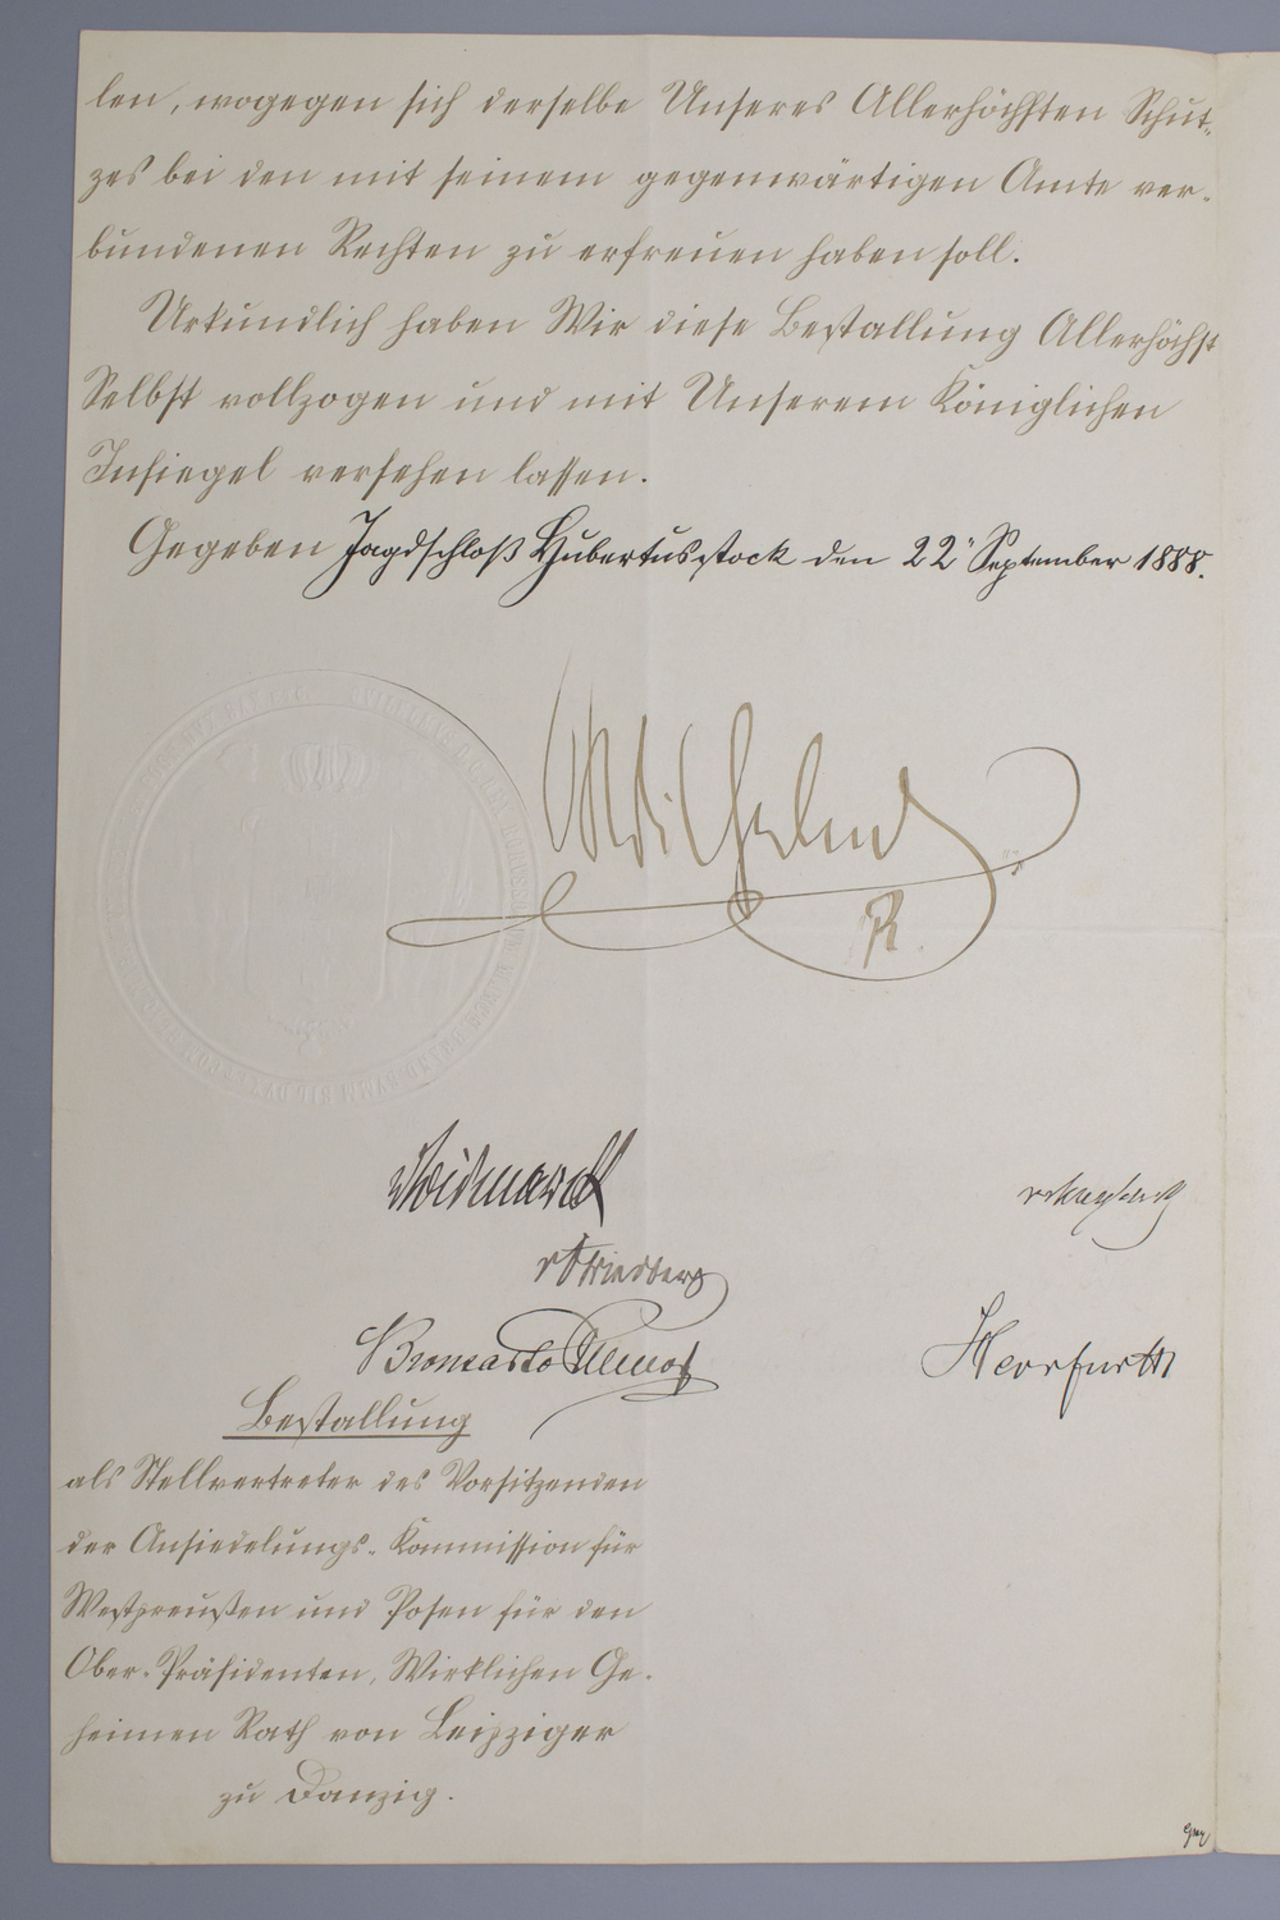 len, wogegen sich derselbe Unseres Allerhöchsten Schut-
zes bei den mit seinem gegenwärtigen Amte ver-
bundenen Rechten zu erfreuen haben soll.
Urkundlich haben Wir diese Bestallung Allerhöchst
Selbst vollzogen und mit Unserem Königlichen
Insiegel versehen lassen.
Gegeben Jagdschloß Hubertusstock den 22ⁿ September 1888.
Wilhelm
R.
v Bismarck
v Friedberg
Bronsart v
Herrfurth
Bestallung
als Stellvertreter des Vorsitzenden
der Ansiedelungs-Kommission für
Westpreußen und Posen für den
Ober-Präsidenten, Wirklichen Ge-
heimen Rath von Leipziger
zu Danzig.